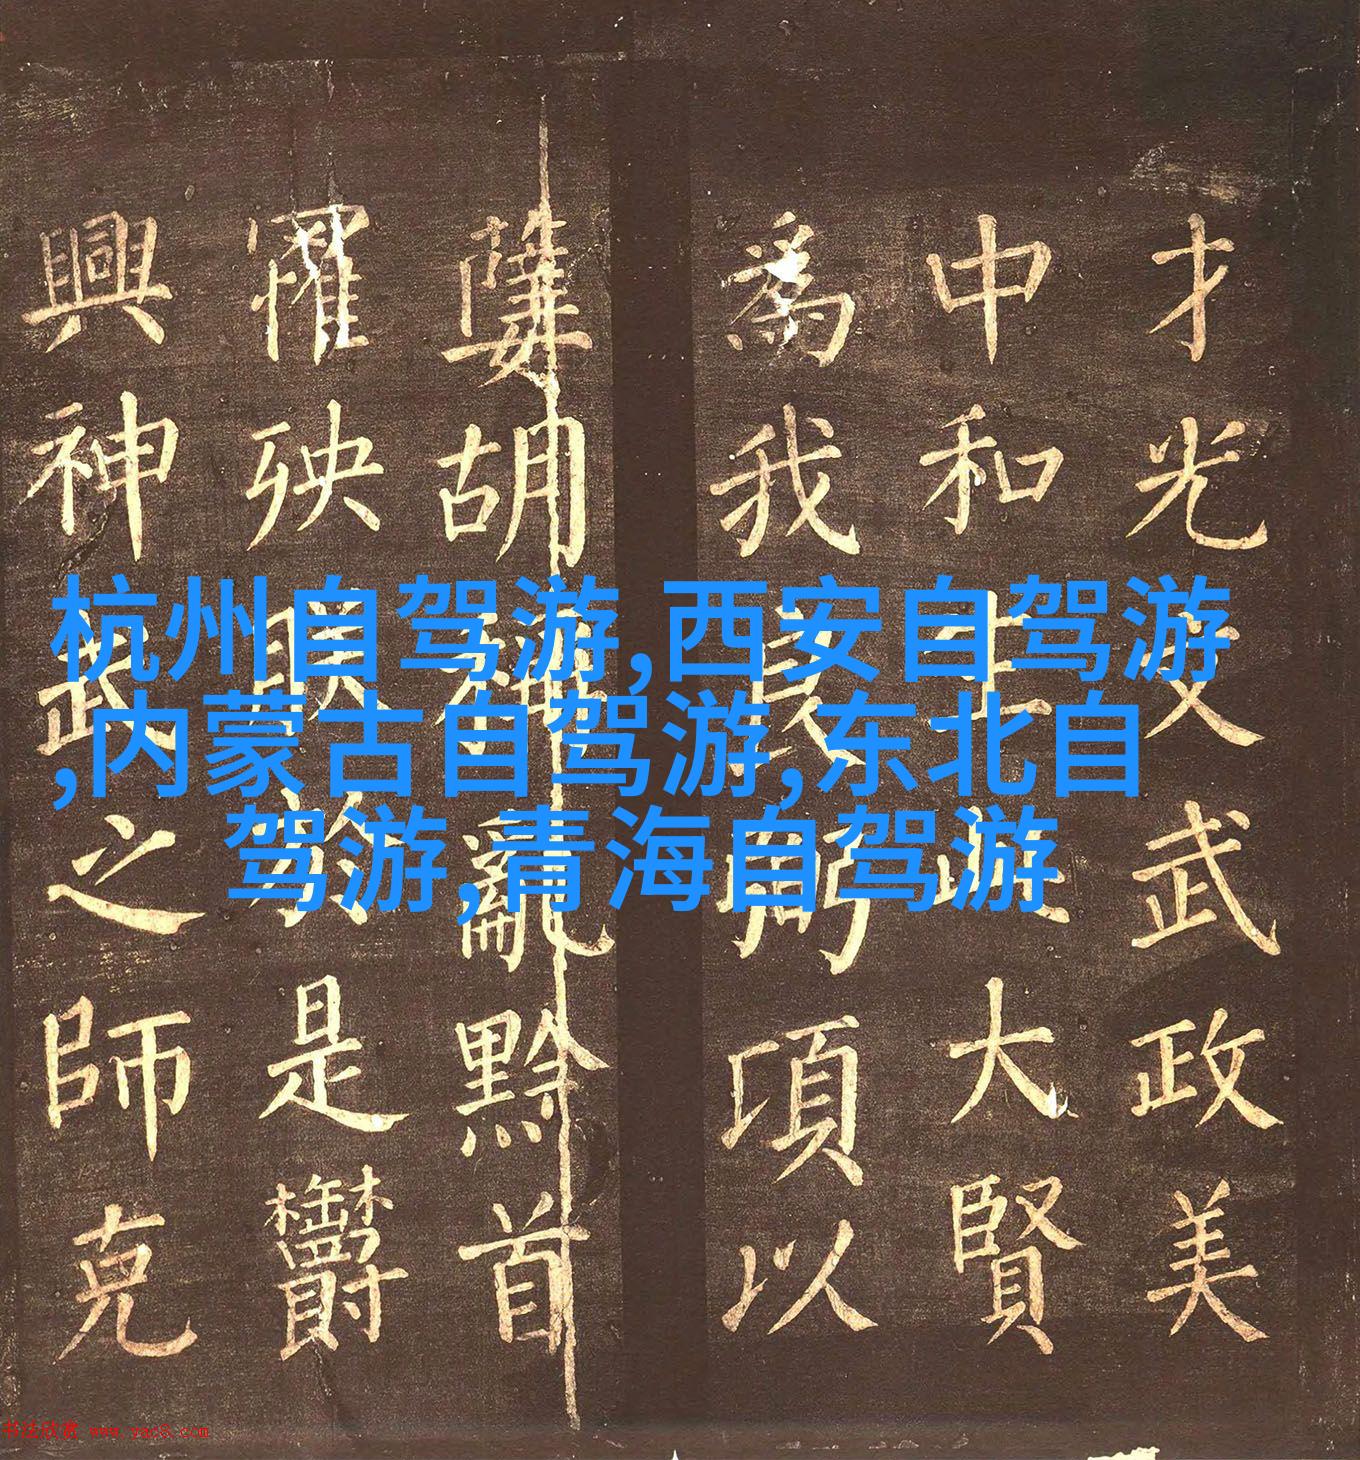 杭州自驾游,西安自驾游
,内蒙古自驾游,东北自
驾游,青海自驾游
才光文武政美
中和正大賢
為我弼項以
孽胡稱亂黔首
罹殃於是欝
興神武之師克
书法欣赏 www.yac8.com